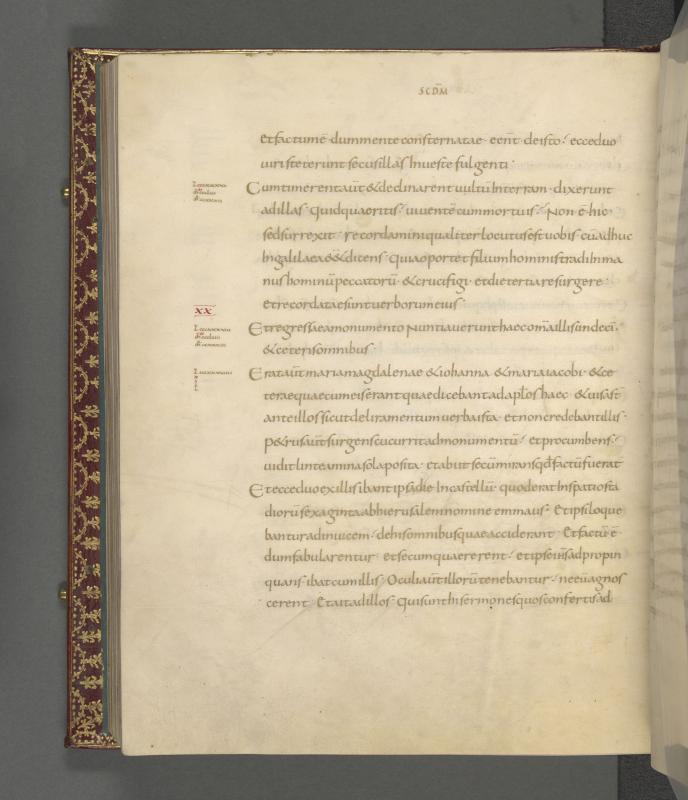 SCDM
Et factum ē dum mente consternatae eēnt de isto ecce duo
uiri steterunt secus illas In ueste fulgenti
Cum timerent aūt & declinarent uultū In terram dixerunt
ad illas Quid quaeritis uiuentē cum mortuis Non ē hic
sed surrexit recordamini qualiter locutus est uobis cū adhuc
In galilaea e&& dicens Quia oportet filium hominis tradi In ma
nus hominū peccatorū & crucifigi et die tertia resurgere
et recordatae sunt uerborum eius
XX
Et regressae a monumento Nuntiauerunt haec omīa illis undecī
& ceteris omnibus
Erat aūt maria magdalenae & iohanna & maria iacobi & ce
terae quae cum eis erant quae dicebant ad aplos haec & uisa st̄
ante illos sicut deliramentum uerba ista et non credebant illis
P&rus aūt surgens cucurrit ad monumentū et procumbens
uidit linteamina sola posita et abiit secum mirans qd factū fuerat
Et ecce duo ex illis ibant ipsa die In castellū quod erat In spatio sta
diorū sexaginta ab hierusalem nomine emmaus Et ipsi loque
bantur ad inuicem de his omnibus quae acciderant Et factū ē
dum fabularentur et secum quaererent et ipse ih̄s adpropin
quans ibat cum illis Oculi aūt illorū tenebantur ne eū agnos
cerent Et ait ad illos Qui sunt hi sermones quos confertis ad